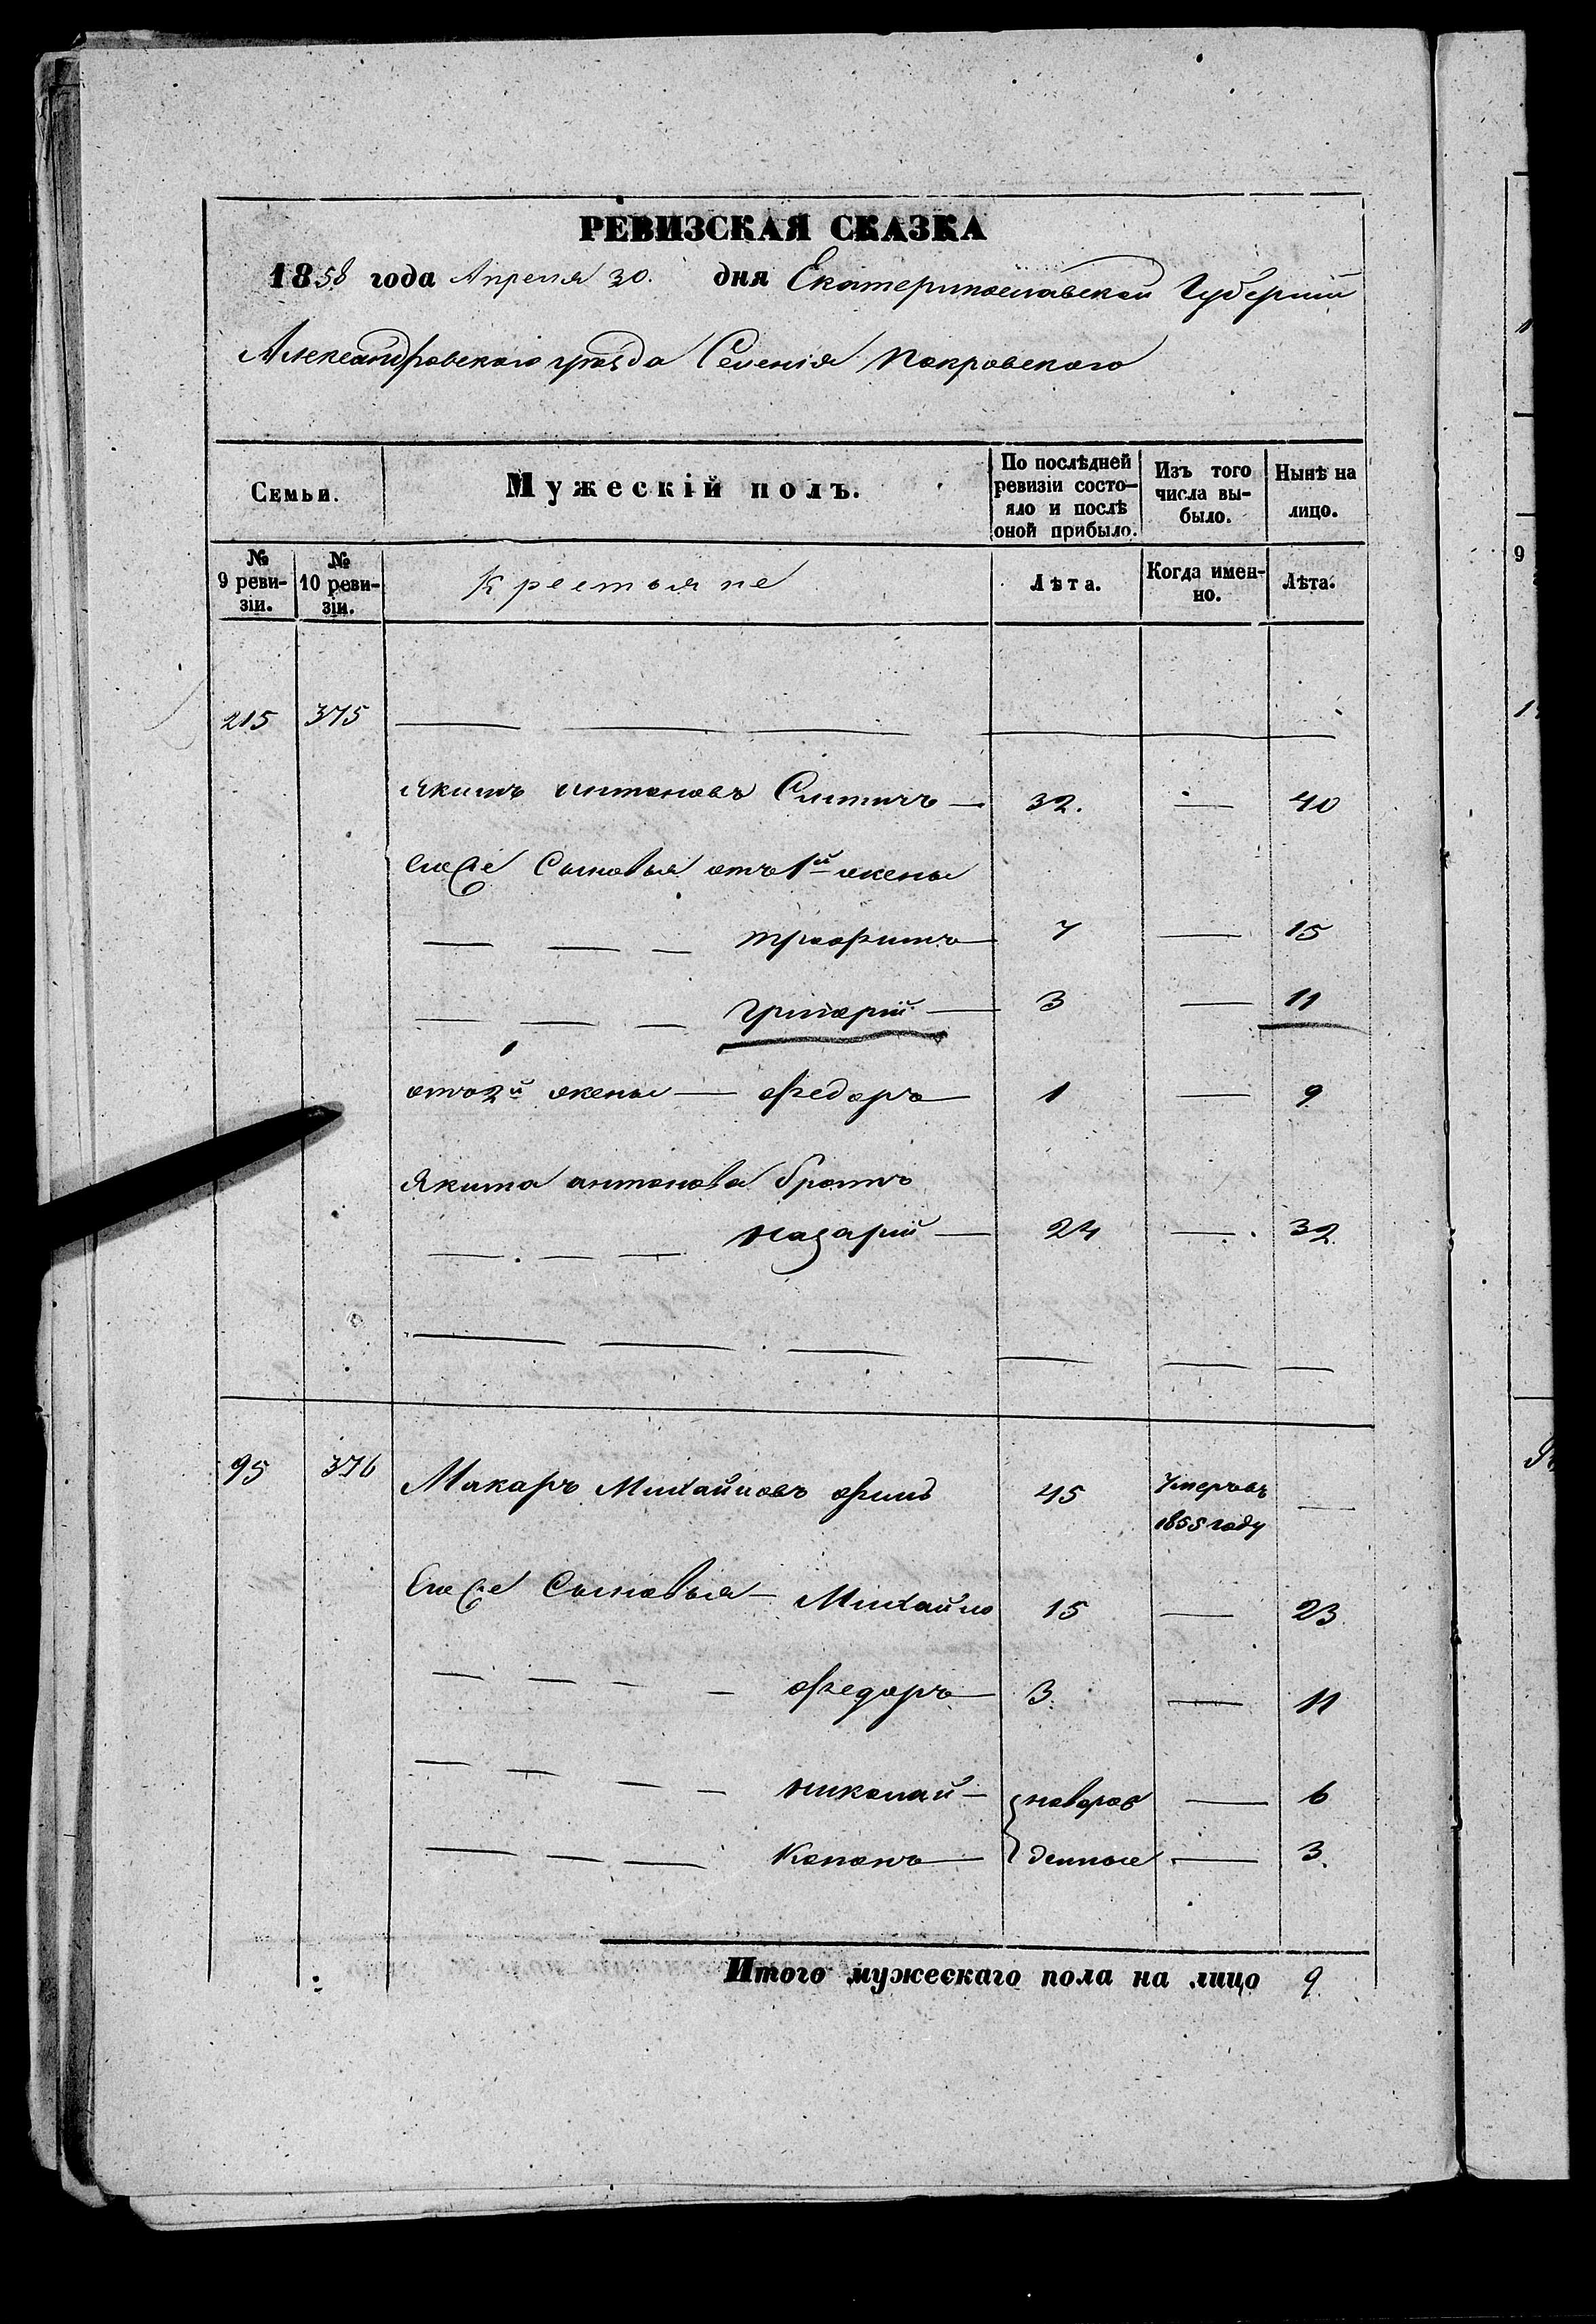 РЕВИЗСКАЯ СКАЗКА
1858 года Апреля 30. дня Екатеринославской Губерніи
Александровскаго уѣзда Селенія Покровскаго
Семьи. Мужескій полъ. По послѣдней ревизіи состояло и послѣ оной прибыло. Изъ того числа выбыло. Нынѣ на лицо.
№ 9 ревизіи. № 10 ревизіи. Крестьяне Лѣта. Когда именно. Лѣта.
215 375
Якимъ Антоновъ 32. — 40
его же Сыновья отъ 1й жены
Трофимъ 7 — 15
Григорій 3 — 11
отъ 2й жены — Федоръ 1 — 9
Якима Антонова братъ
Назарій — 24 — 32
95 376 Макаръ Михайловъ 45 Умеръ въ 1855 году —
Его же Сыновья — Михайло 15 — 23
Федоръ 3. — 11
Николай — новорож — 6
Кононъ — денные — 3.
Итого мужескаго пола на лицо 9
9